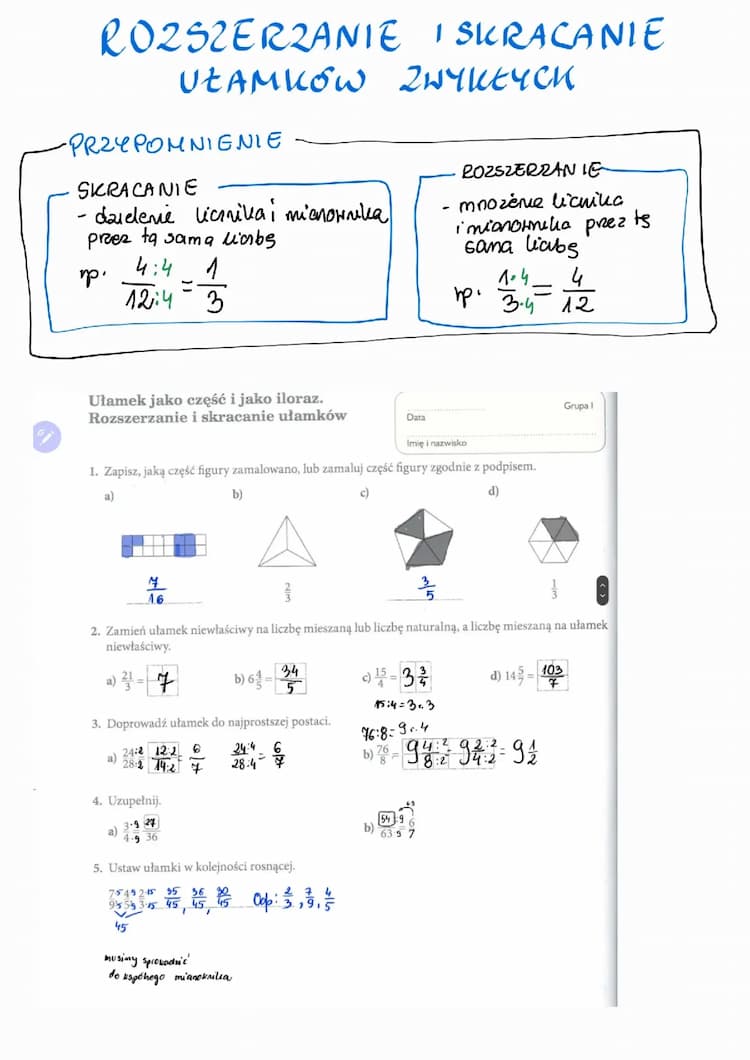 ROZSZERZANIE I SKRACANIE
UŁAMKÓW ZWYKŁYCH
PRZYPOMNIENIE
SKRACANIE
- dzielenie licznika i mianownika
przez tą samą liczbę
np. 4:4/12:4 = 1/3
ROZSZERZANIE
- mnożenie licznika
i mianownika przez tę
samą liczbę
np. 1·4/3·4 = 4/12
Ułamek jako część i jako iloraz.
Rozszerzanie i skracanie ułamków
Grupa I
Data
Imię i nazwisko
1. Zapisz, jaką część figury zamalowano, lub zamaluj część figury zgodnie z podpisem.
a) b) c) d)
7/16 2/3 3/5 1/3
2. Zamień ułamek niewłaściwy na liczbę mieszaną lub liczbę naturalną, a liczbę mieszaną na ułamek
niewłaściwy.
a) 21/3 = 7 b) 6 4/5 = 34/5 c) 15/4 = 3 3/4 d) 14 5/7 = 103/7
15:4=3 r. 3
3. Doprowadź ułamek do najprostszej postaci.
76:8=9 r. 4
a) 24:2/28:2 12:2/14:2 = 6/7 24:4/28:4 = 6/7 b) 76/8 = 9 4:2/8:2 = 9 2:2/4:2 = 9 1/2
4. Uzupełnij.
a) 3·9/4·9 = 27/36 b) 54:9/63:9 = 6/7
5. Ustaw ułamki w kolejności rosnącej.
7·5/9·5 4·9/5·9 2·15/3·15 35/45, 36/45, 30/45 Odp: 2/3, 7/9, 4/5
45
musimy sprowadzić
do wspólnego mianownika